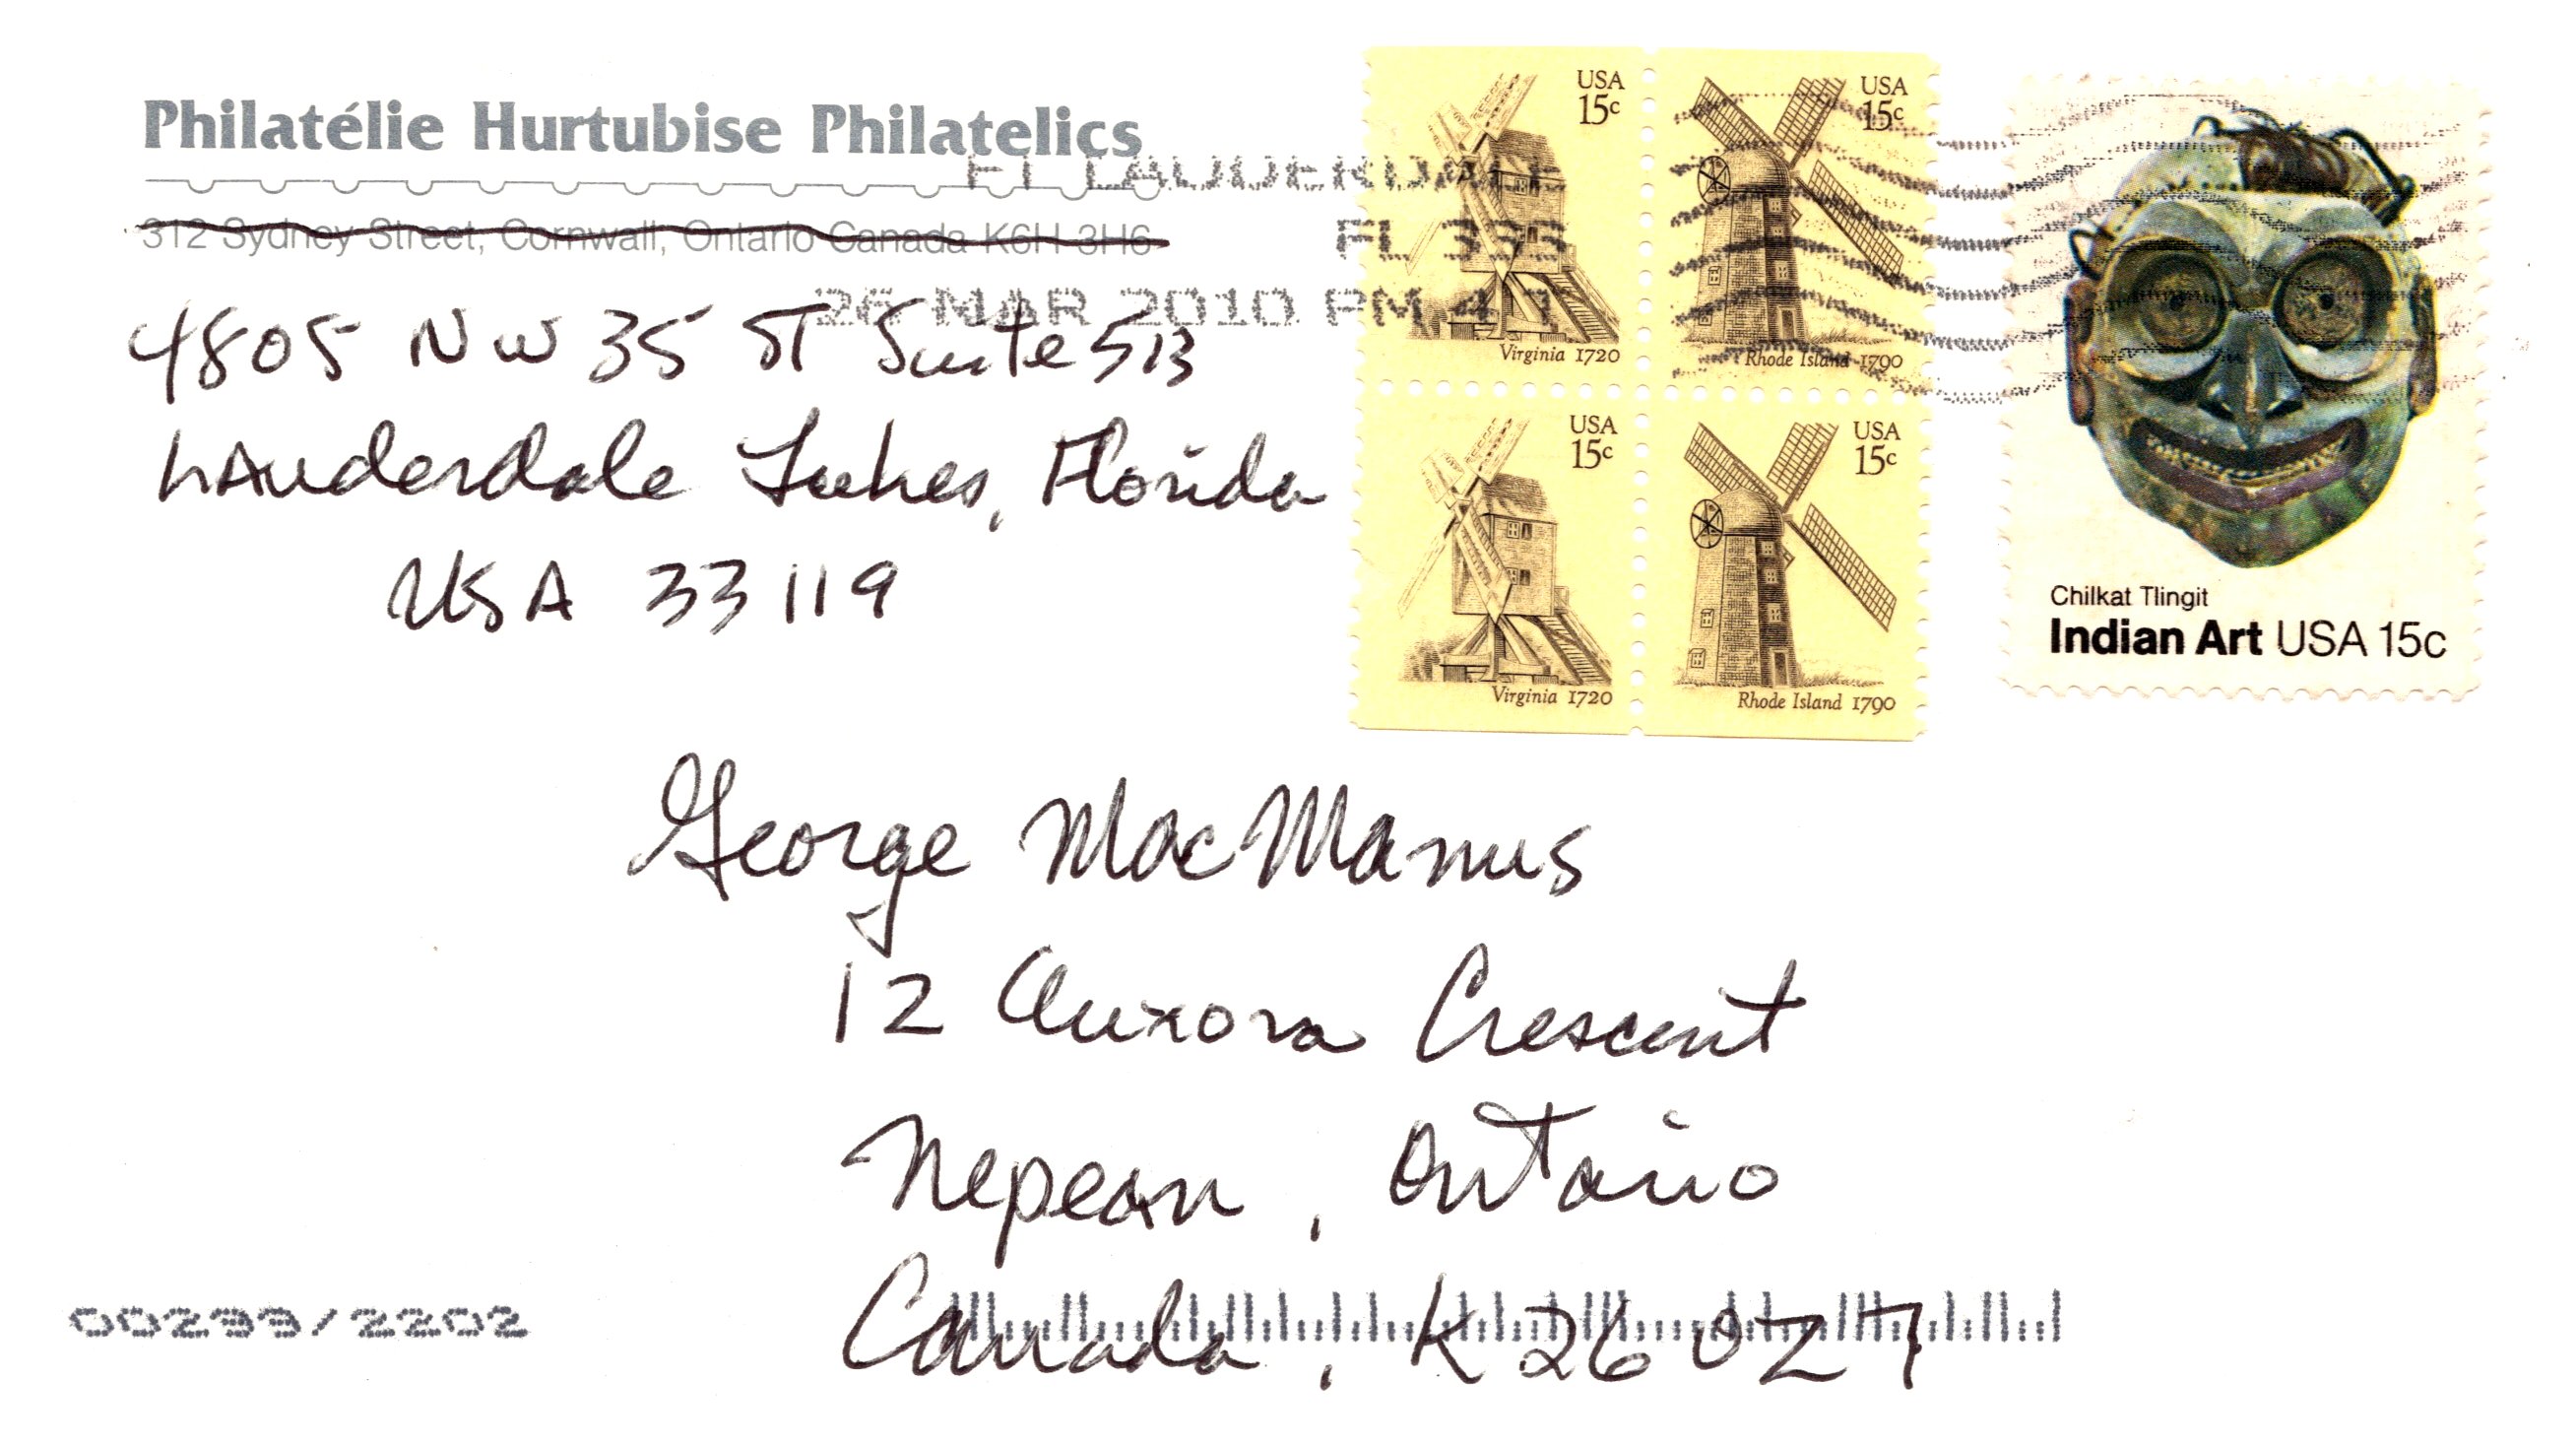 Philatélie Hurtubise Philatelics
312 Sydney Street, Cornwall, Ontario Canada K6H 3H6
4805 NW 35 ST Suite 513
Lauderdale Lakes, Florida
USA 33119
FT LAUDERDALE
FL 333
26 MAR 2010 PM 4 1
USA
15c
Virginia 1720
USA
15c
Rhode Island 1790
USA
15c
Virginia 1720
USA
15c
Rhode Island 1790
Chilkat Tlingit
Indian Art USA 15c
George MacManus
12 Aurora Crescent
Nepean, Ontario
Canada, K2G 0Z7
00299/2202